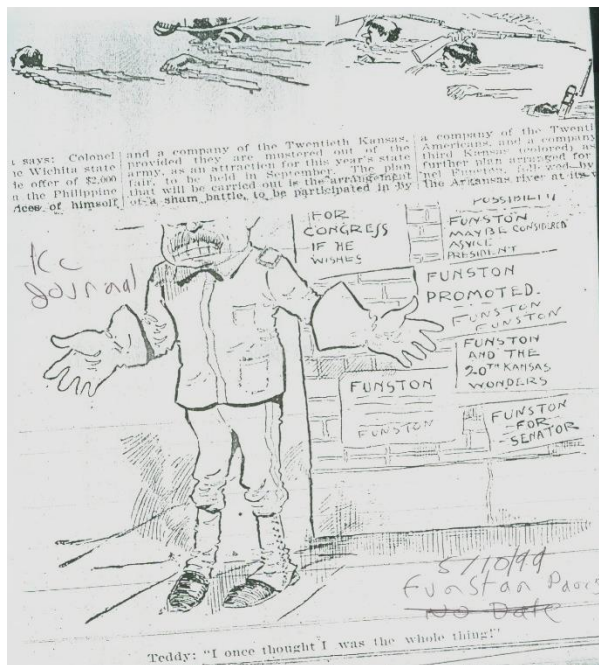 says: Colonel
Wichita state
offer of $2,000
the Philippine
of himself
and a company of the Twentieth Kansas,
provided they are mustered out of the
army, as an attraction for this year's state
fair, to be held in September. The plan
that will be carried out is the arrangement
of a sham battle, to be participated in by
a company of the
Americans, and a company
third Kansas (colored) as
further plan arranged for
nel Funston, followed by
the Arkansas river at its
KC
Journal
FOR
CONGRESS
IF HE
WISHES
POSSIBILITY
FUNSTON
MAY BE CONSIDERED
PRESIDENT
FUNSTON
PROMOTED.
FUNSTON
FUNSTON
FUNSTON
AND THE
20TH KANSAS
WONDERS
FUNSTON
FUNSTON
FUNSTON
-FOR-
SENATOR
5/10/99
Funston
No Date
Teddy: "I once thought I was the whole thing!"